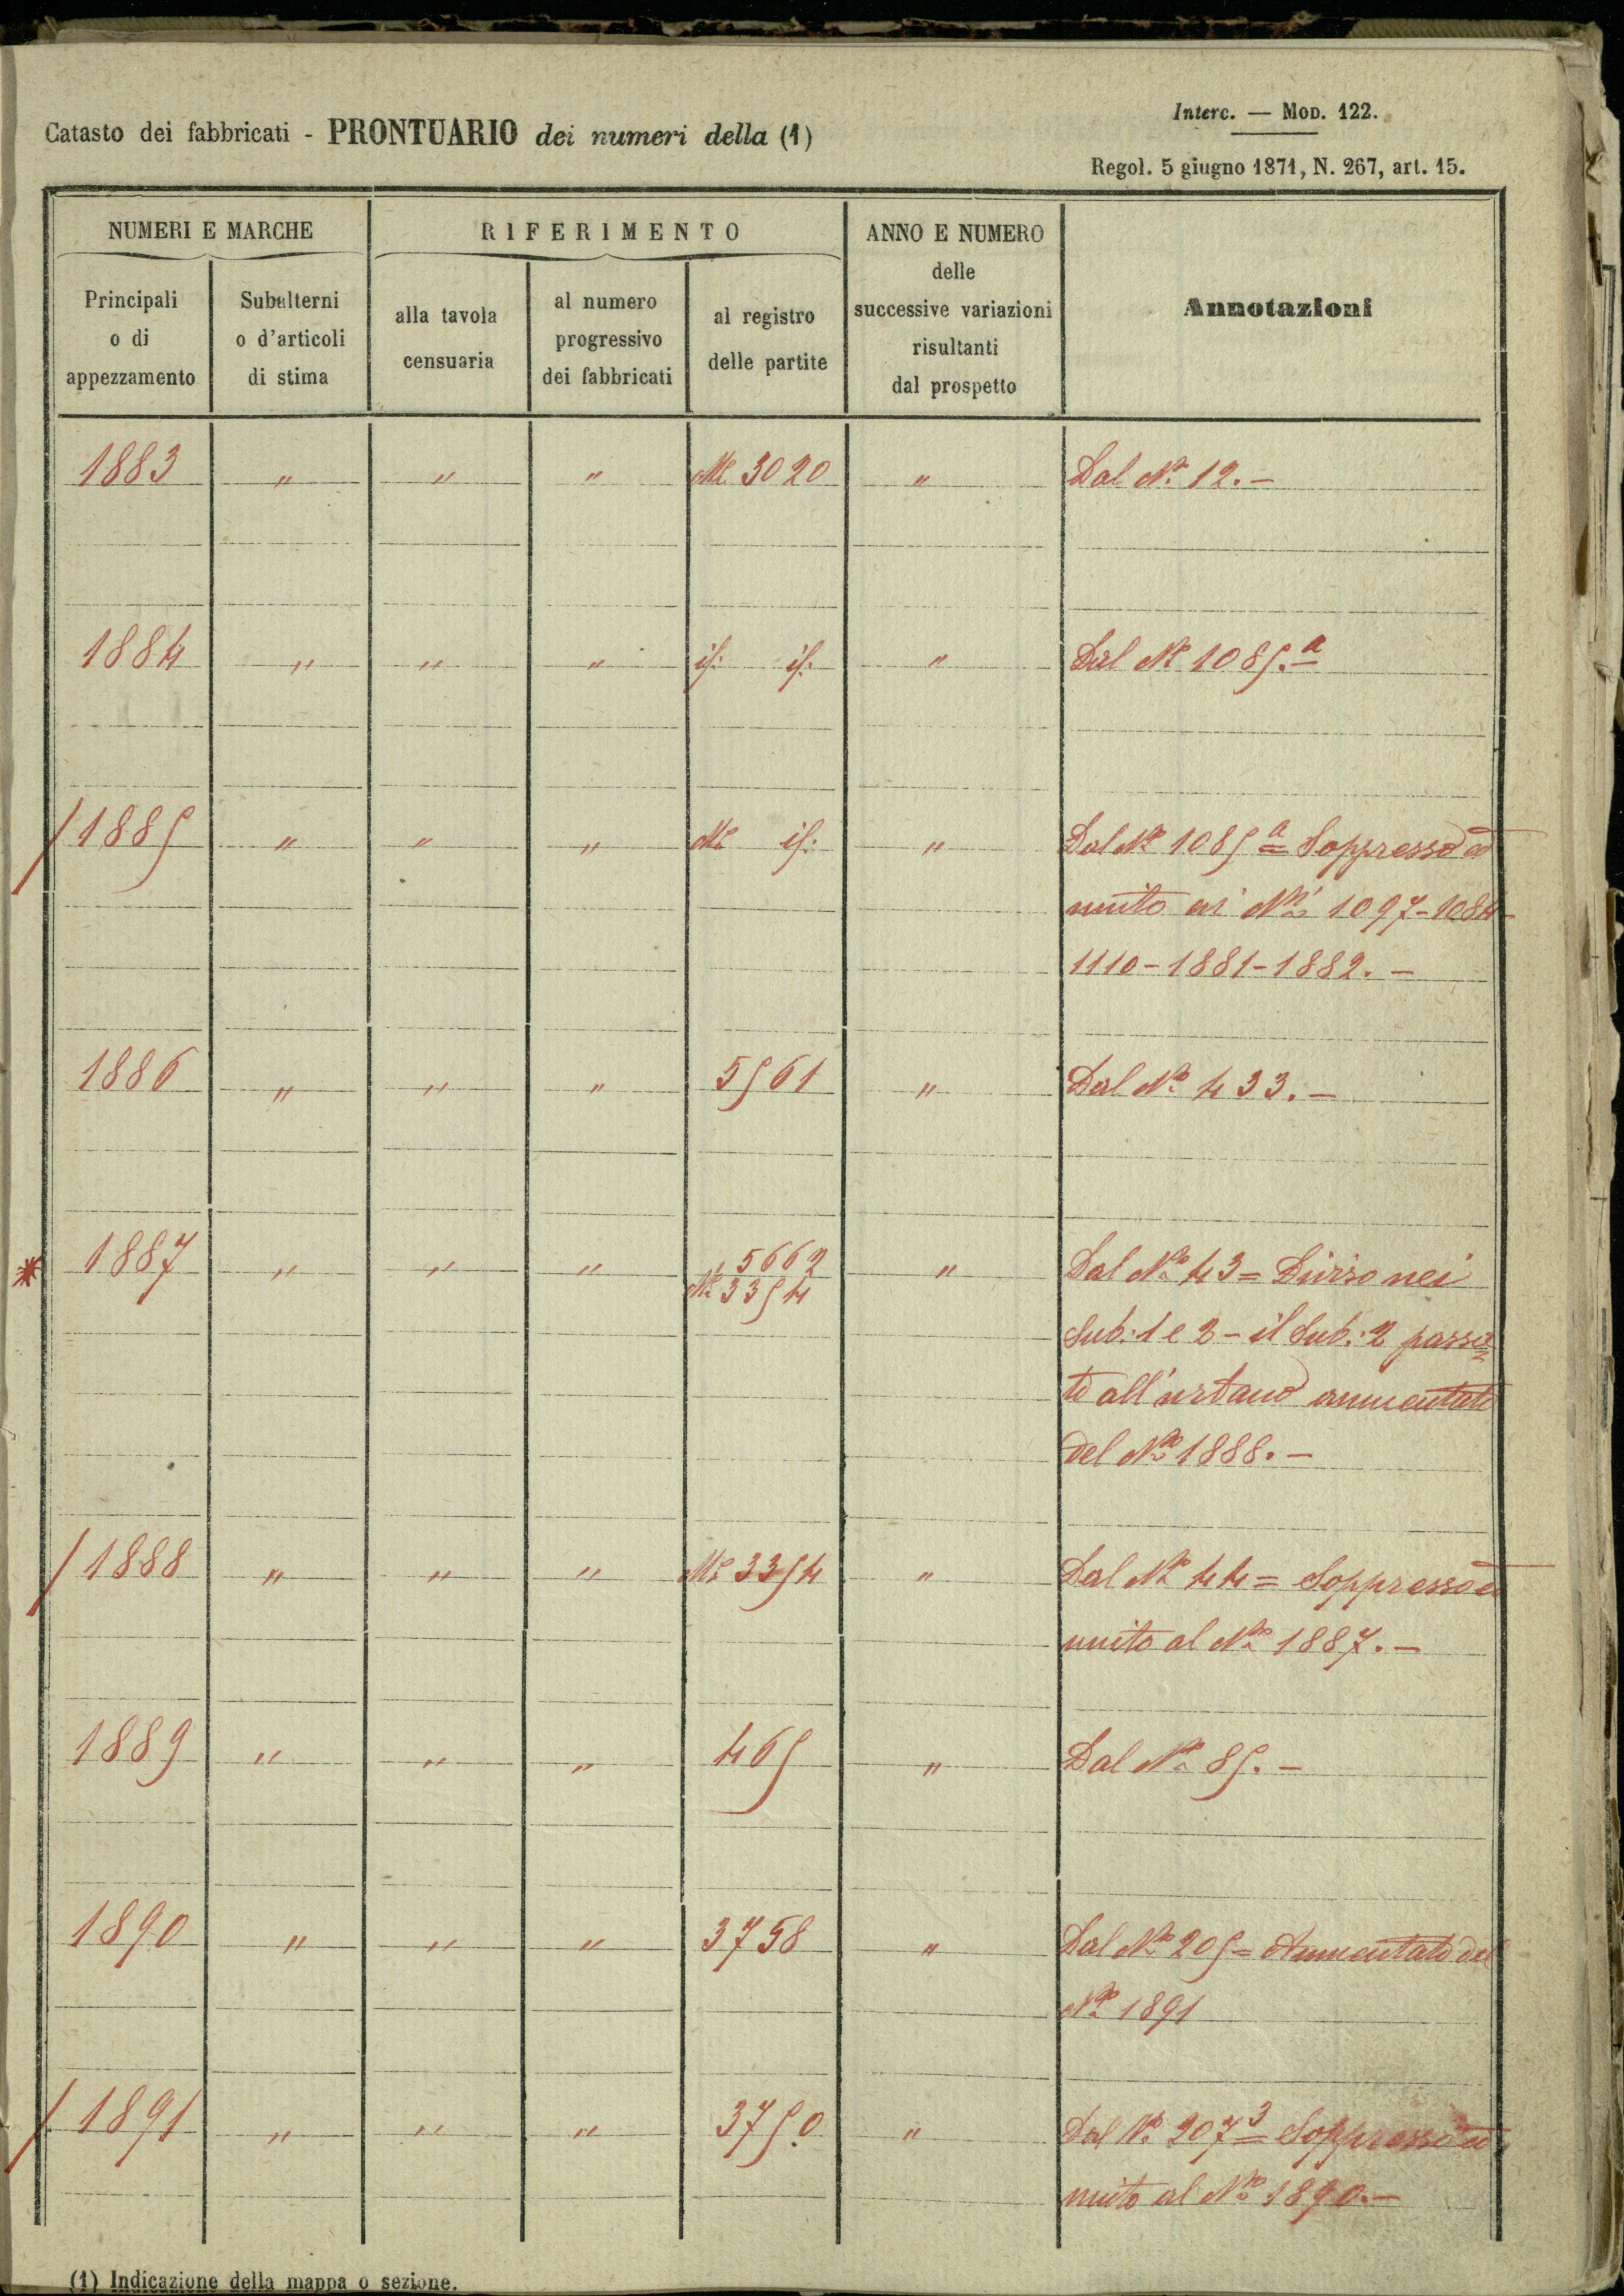 Interc. — Mod. 122.
Catasto dei fabbricati - PRONTUARIO dei numeri della (1)
Regol. 5 giugno 1871, N. 267, art. 15.
NUMERI E MARCHE
RIFERIMENTO
ANNO E NUMERO delle successive variazioni risultanti dal prospetto
Annotazioni
Principali o di appezzamento
Subalterni o d'articoli di stima
alla tavola censuaria
al numero progressivo dei fabbricati
al registro delle partite
1883 " " " Me 3020 " Dal No 12. —
1884 " " " if: if: " Dal No 1085.a
/ 1885 " " " Me if: " Dal No 1085 a Soppresso ed
unito ai Ni 1097-1084-
1110-1881-1882. —
1886 " " " 5561 " Dal No 433. —
1887 " " " 5662 " Dal No 43 = Diviso nei
Me 3354
Sub: 1 e 2 - il Sub: 2 passa=
to all'urbano aumentato
del No 1888. —
/ 1888 " " " Me 3354 " Dal No 44 = Soppresso ed
unito al No 1887. —
1889 " " " 465 " Dal No 85. —
1890 " " " 3758 " Dal No 205 = Aumentato del
No 1891
/ 1891 " " " 3750 " Dal No 207 3 Soppresso ed
unito al No 1890. —
(1) Indicazione della mappa o sezione.